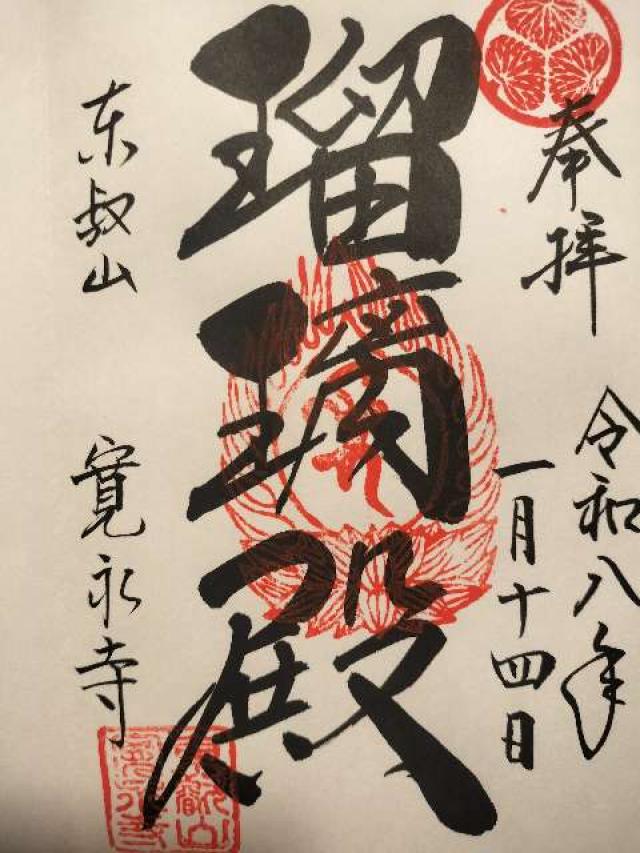 奉拝
令和八年
一月十四日
瑠璃殿
东叡山
寛永寺